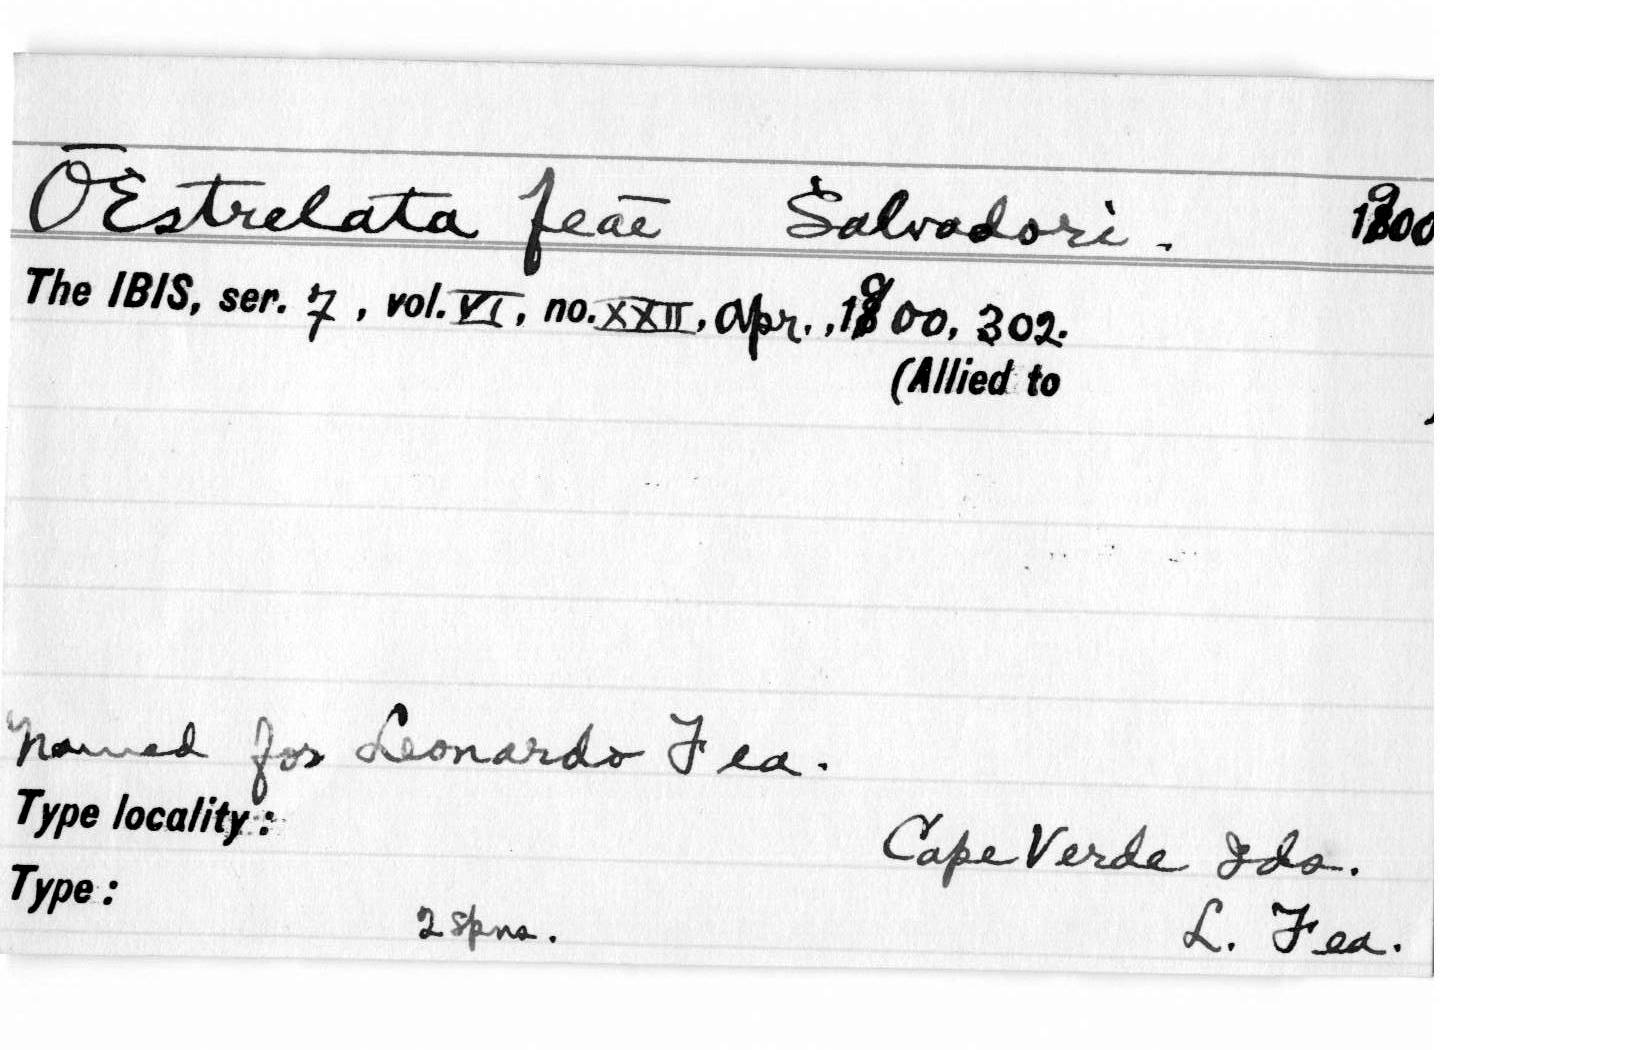 OEstrelata feae Salvadori. 1900
The IBIS, ser. 7, vol. VI, no. XXII, Apr., 1900, 302.
(Allied to )
Named for Leonardo Fea.
Type locality: Cape Verde Ids.
Type: 2 spns. L. Fea.